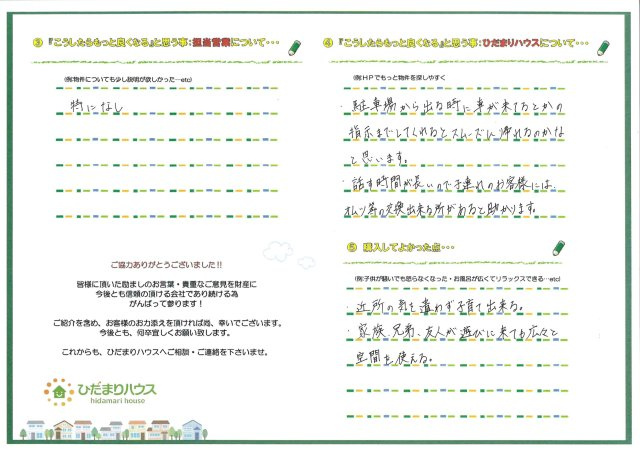 ③『こうしたらもっと良くなる』と思う事:担当営業について・・・
(例:物件についても少し説明が欲しかった…etc)
特になし
ご協力ありがとうございました!!
皆様に頂いた励ましのお言葉・貴重なご意見を財産に
今後とも信頼の頂ける会社であり続ける為
がんばって参ります!
ご紹介を含め、お客様のお力添えを頂ければ尚、幸いでございます。
今後とも、何卒宜しくお願い致します。
これからも、ひだまりハウスへご相談・ご連絡を下さいませ。
ひだまりハウス
hidamari house
④『こうしたらもっと良くなる』と思う事:ひだまりハウスについて・・・
(例:HPでもっと物件を探しやすく
・駐車場から出る時に車が来てるとかの
指示までしてくれるとスムーズに帰れるのかな
と思います。
・話す時間が長いので子連れのお客様には、
オムツ等の交換出来る所があると助かります。
⑤ 購入してよかった点・・・
(例:子供が騒いでも怒らなくなった・お風呂が広くてリラックスできる…etc)
・近所の気を遣わず子育て出来る。
・家族、兄弟、友人が遊びに来ても広々と
空間を使える。